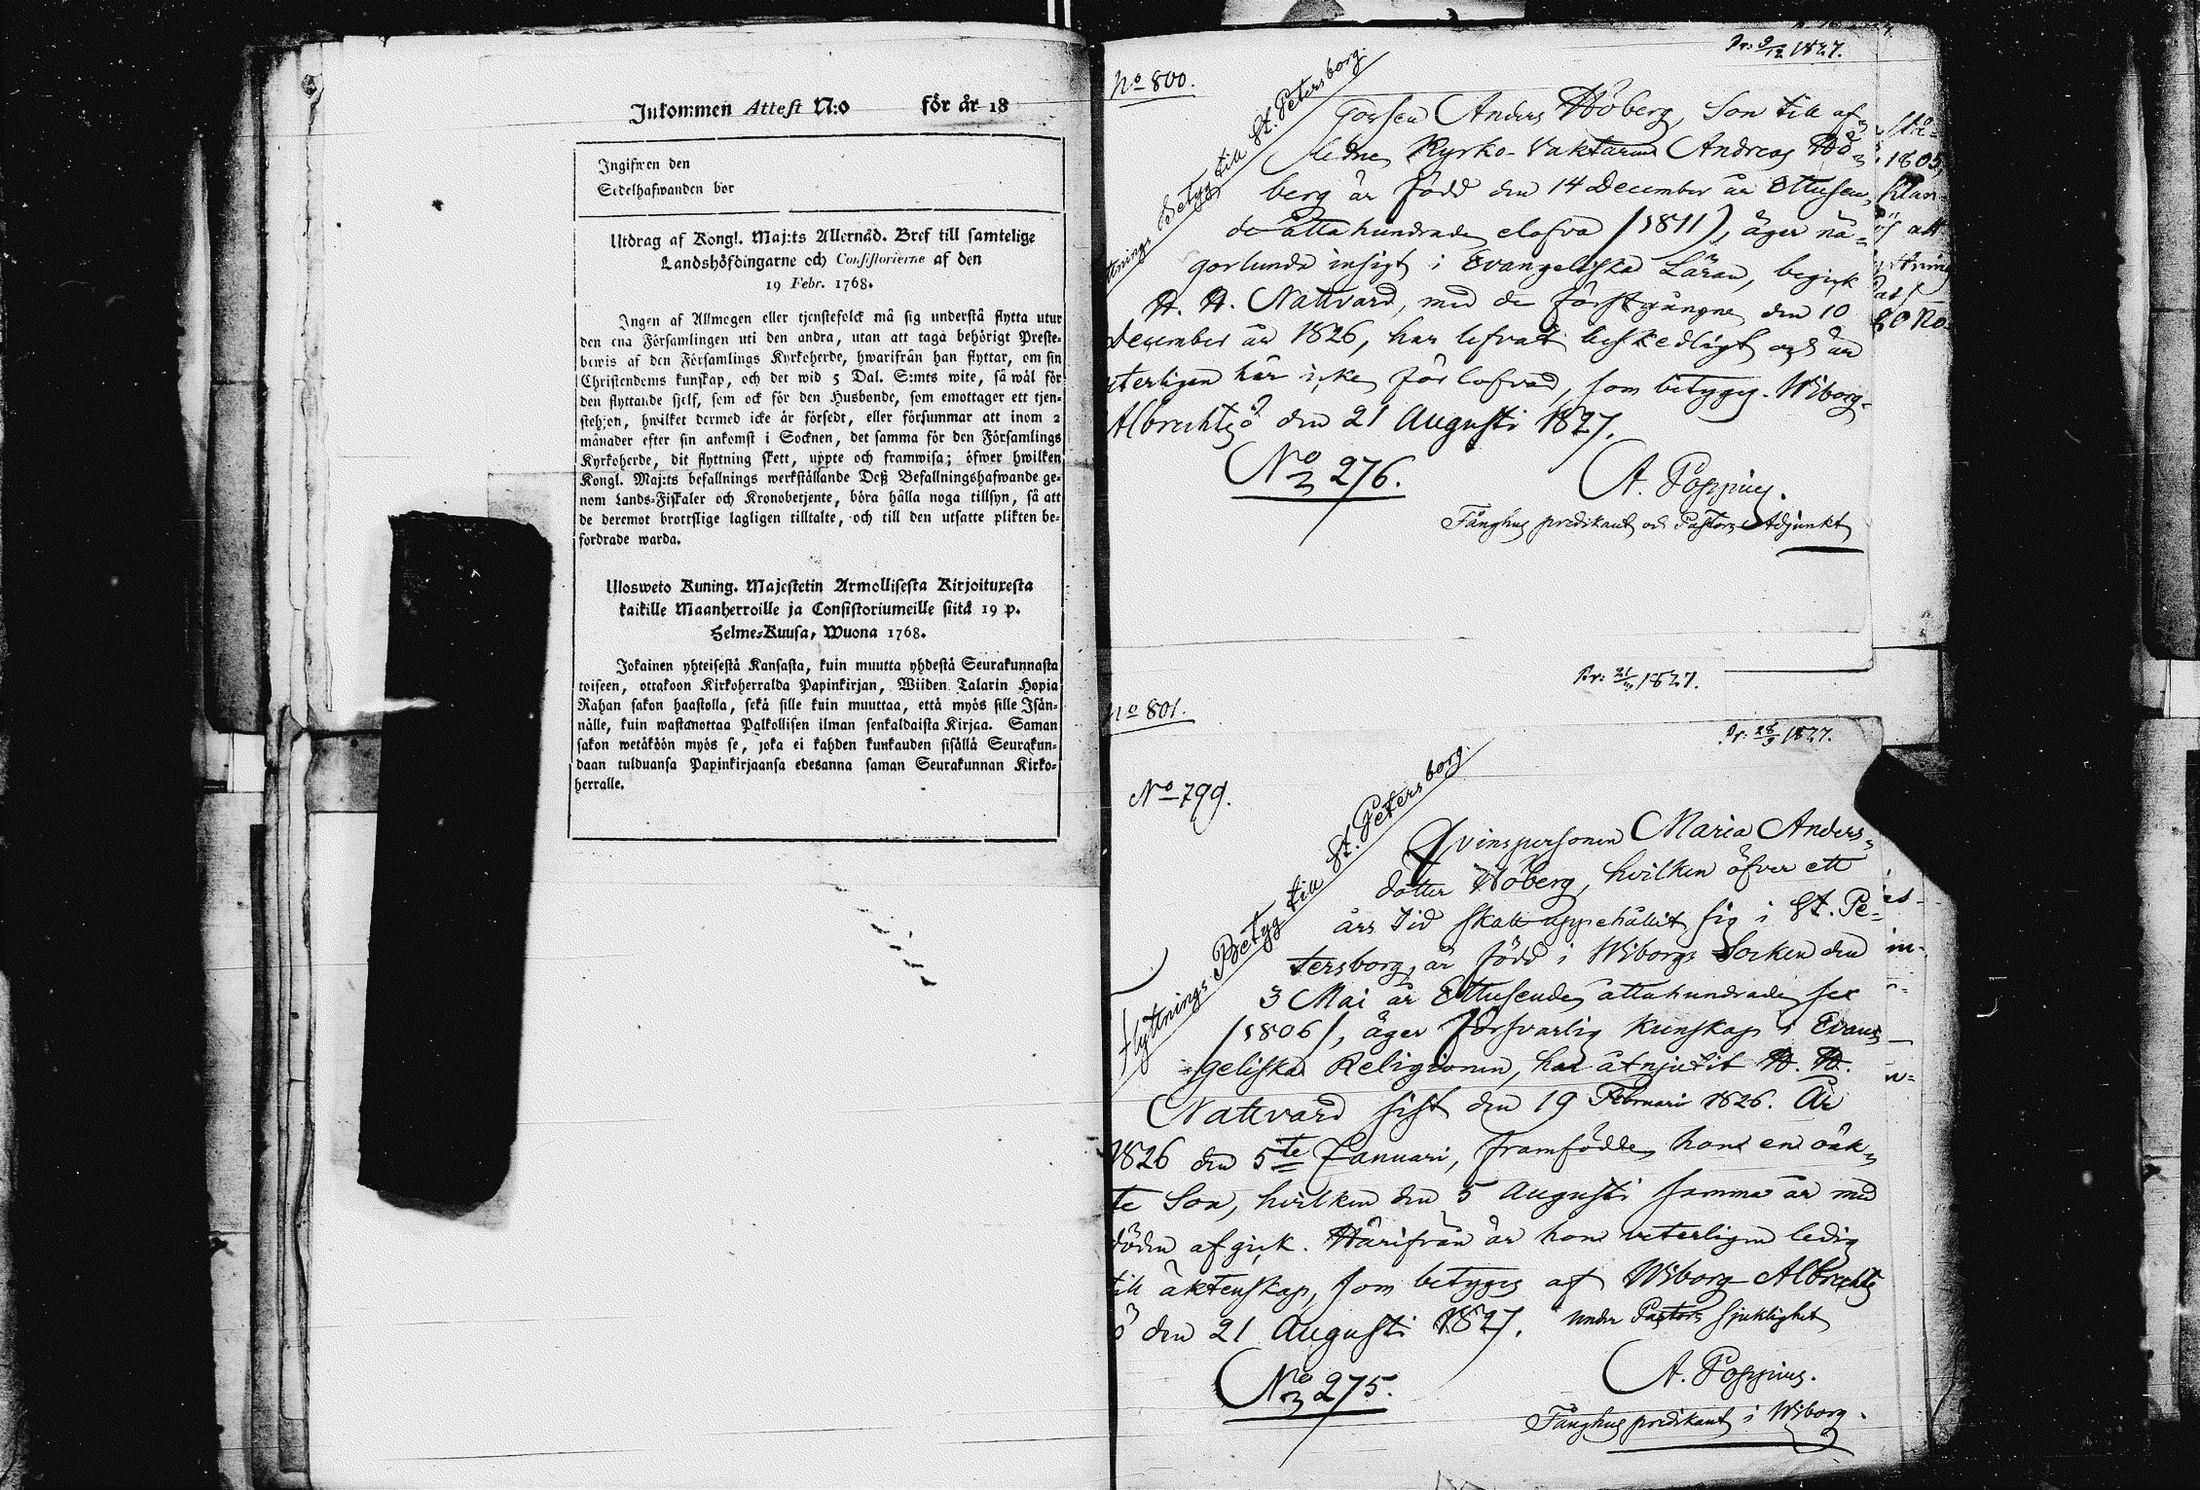 Inkommen Attest N:o för år 18
Ingifwen den
Sedelhafwanden bor
Utdrag af Kongl. Maj:ts Allernåd. Bref till samtelige
Landshöfdingarne och Consistorierne af den
19 Febr. 1768.
Ingen af Allmogen eller tjenstefolck må sig understå flytta utur
den ena Församlingen uti den andra, utan att taga behörigt Preste-
bewis af den Församlings Kyrkoherde, hwarifrån han flyttar, om sin
Christendoms kunskap, och det wid 5 Dal. S:mts wite, så wäl för
den flyttande sjelf, som ock för den Husbonde, som emottager ett tjen-
stehjon, hwilket dermed icke är försedt, eller försummar att inom 2
månader efter sin ankomst i Socknen, det samma för den Församlings
Kyrkoherde, dit flyttning skett, uppte och framwisa; öfwer hwilken
Kongl. Maj:ts befallnings werkställande Deß Befallningshafwande ge-
nom Lands-Fiskaler och Kronobetjente, böra hålla noga tillsyn, så att
de deremot brottslige lagligen tilltalte, och till den utsatte plikten be-
fordrade warda.
Ulosweto Kuning. Majestetin Armollisesta Kirjoituxesta
kaikille Maanherroille ja Consistoriumeille siitä 19 p.
Helme-Kuusa, Wuona 1768.
Jokainen yhteisestä Kansasta, kuin muutta yhdestä Seurakunnasta
toiseen, ottakoon Kirkoherralda Papinkirjan, Wiiden Talarin Hopia
Rahan sakon haastolla, sekä sille kuin muuttaa, että myös sille Isän-
nälle, kuin wastanottaa Palkollisen ilman senkaldaista Kirjaa. Saman
sakon wetäköön myös se, joka ei kahden kuukauden sisällä Seurakun-
daan tulduansa Papinkirjaansa edesanna saman Seurakunnan Kirko-
herralle.
Pr: 9/12 1827.
No 800.
Betyg till St. Petersborg
Gossen Anders Höberg, Son till af-
ledne Kyrko-Vaktaren Andreas Hö-
berg är född den 14 December år Ettusen-
de åttahundrade elofva (1811), äger nå-
gorlunda insigt i Evangeliska Läran, begick
H. H. Nattvard, med de förstgångne den 10
December år 1826, har lefvat beskedligt och är
veterligen här icke förlofvad, som betyges. Wiborg-
Albrechtsö den 21 Augusti 1827.
No 276.
A. Poppius.
Fånghus predikant och Pastors Adjunkt
1805,
att
No 801.
Pr: 21/9 1827.
Pr: 28/9 1827.
No 799.
Flyttnings Betyg till St. Petersborg
Qvinspersonen Maria Anders-
dotter Höberg, hvilken öfver ett
års tid skall uppehållit sig i St. Pe-
tersborg, är född i Wiborgs Socken den
3 Mai år Ettusende åttahundrade sex
(1806), äger försvarlig kunskap i Evan-
geliska Religionen, har åtnjutit H. H.
Nattvard sist den 19 Februari 1826. År
1826 den 5te Januari, framfödde hon en oäk-
te Son, hvilken den 5 Augusti samma år med
döden afgick. Härifrån är hon veterligen ledig
till äktenskap, som betyges af Wiborg Albrechts
ö den 21 Augusti 1827. under Pastors sjuklighet
No 275.
A. Poppius.
Fånghus predikant i Wiborg.